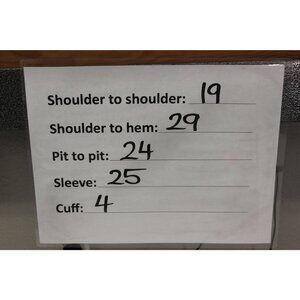 Shoulder to shoulder: 19
Shoulder to hem: 29
Pit to pit: 24
Sleeve: 25
Cuff: 4